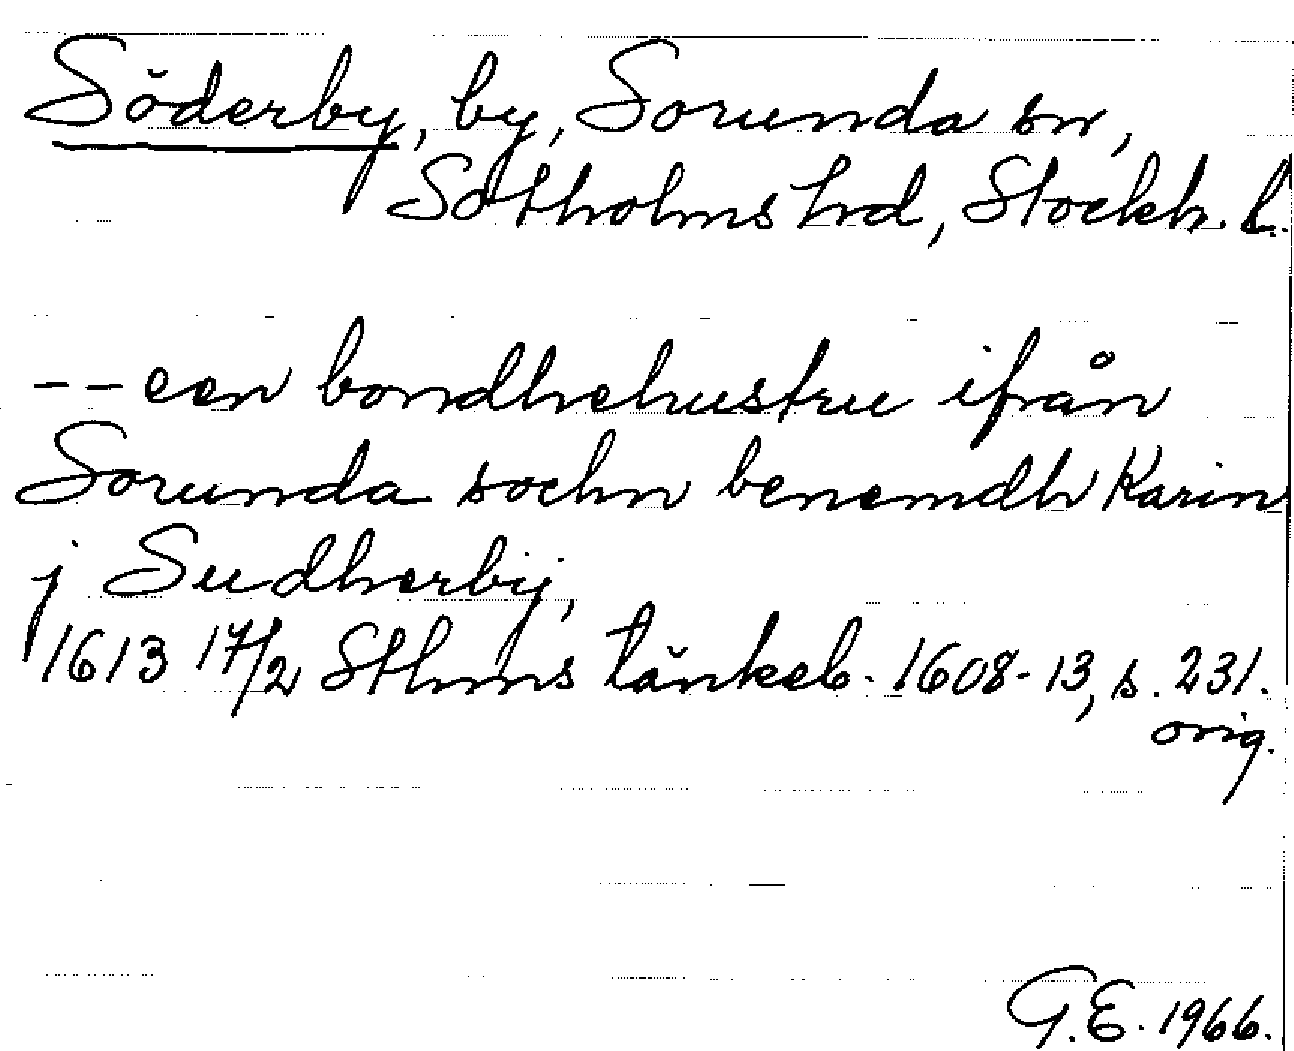 Söderby, by, Sorunda sn,
Sotholms hd, Stockh. l.
-- een bondhehustru ifrån
Sorunda sochn benemdh Karin
j Sudherbij,
1613 17/2 Sthms tänkeb. 1608-13, s. 231.
orig.
G.E. 1966.